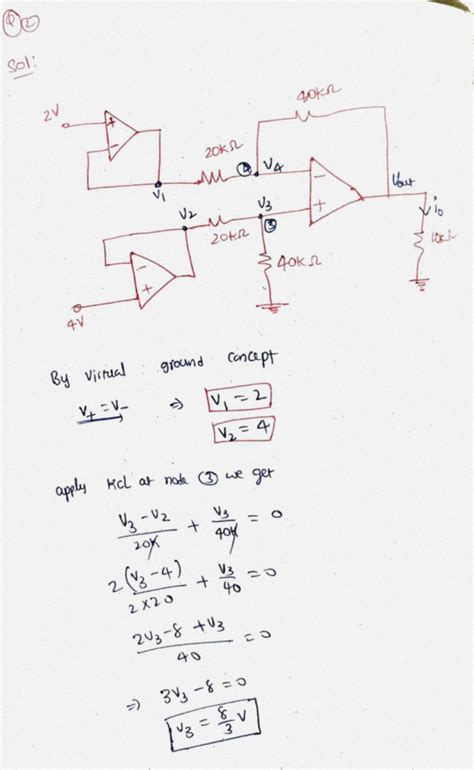 Q 2
Sol:
2V
+
−
V1
20kΩ
4
V4
40kΩ
−
+
Vout
io
10kΩ
V2
20kΩ
V3
3
40kΩ
−
+
4V
By virtual ground concept
V+ = V− ⇒ V1 = 2
V2 = 4
apply KCL at node ③ we get
V3 − V2 / 20K + V3 / 40K = 0
2(V3 − 4) / 2×20 + V3 / 40 = 0
2V3 − 8 + V3 / 40 = 0
⇒ 3V3 − 8 = 0
V3 = 8/3 V